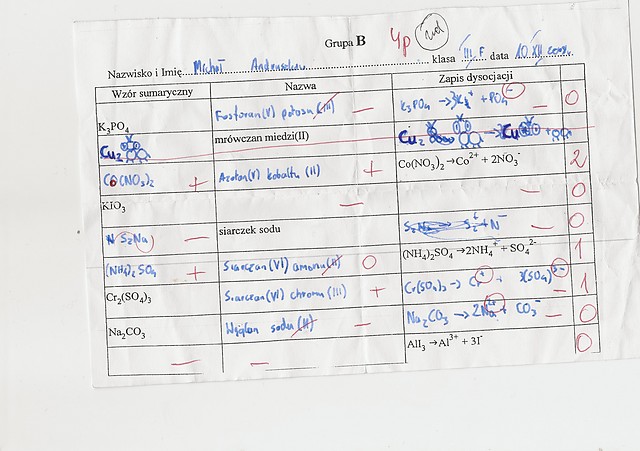 Grupa B 4p
Nazwisko i Imię Michał klasa III F data 10 XII
Wzór sumaryczny Nazwa Zapis dysocjacji
K3PO4 Fosforan(V) potasu (III) — K3PO4 → 3K+ + PO4- — 0
Cu2 mrówczan miedzi(II) Cu2 → Cu
Co(NO3)2 + Azotan(V) kobaltu (II) + Co(NO3)2 →Co2+ + 2NO3- 2
KIO3 — — 0
N S2Na — siarczek sodu S2Na → S2+ N- — 0
(NH4)2SO4 + Siarczan(VI) amonu (II) 0 (NH4)2SO4 →2NH4+ + SO42- 1
Cr2(SO4)3 Siarczan(VI) chromu (III) + Cr(SO4)3 → Cr+ + 3(SO4)3- 1
Na2CO3 Węglan sodu (II) — Na2CO3 → 2Na2+ + CO3- — 0
— — AlI3 →Al3+ + 3I- 0